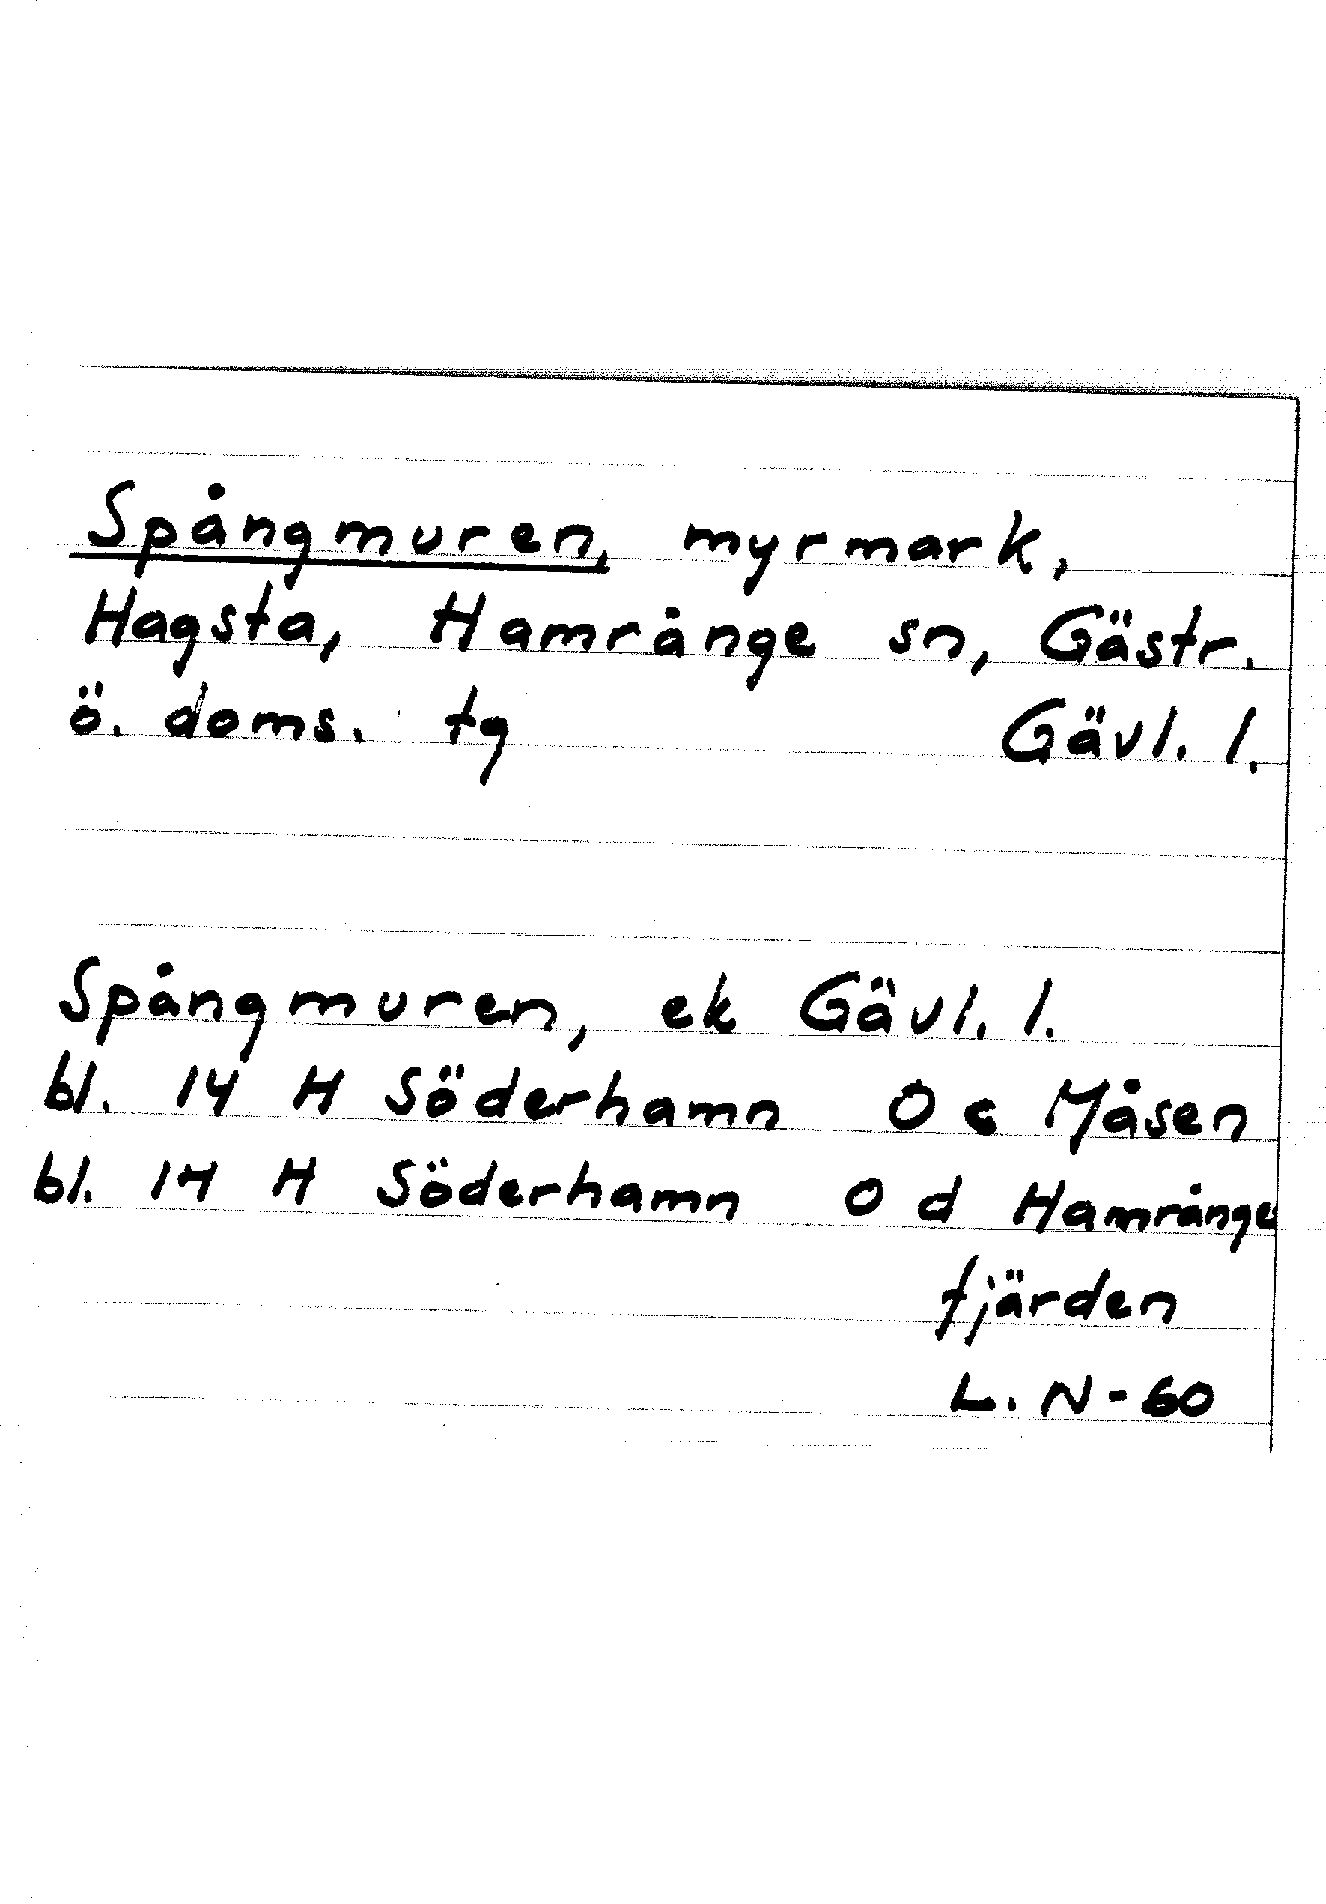 Spångmuren, myrmark,
Hagsta, Hamrånge sn, Gästr.
ö. doms. tg Gävl. l.
Spångmuren, ek Gävl. l.
bl. 14 H Söderhamn O c Måsen
bl. 14 H Söderhamn O d Hamrånge
fjärden
L. N - 60